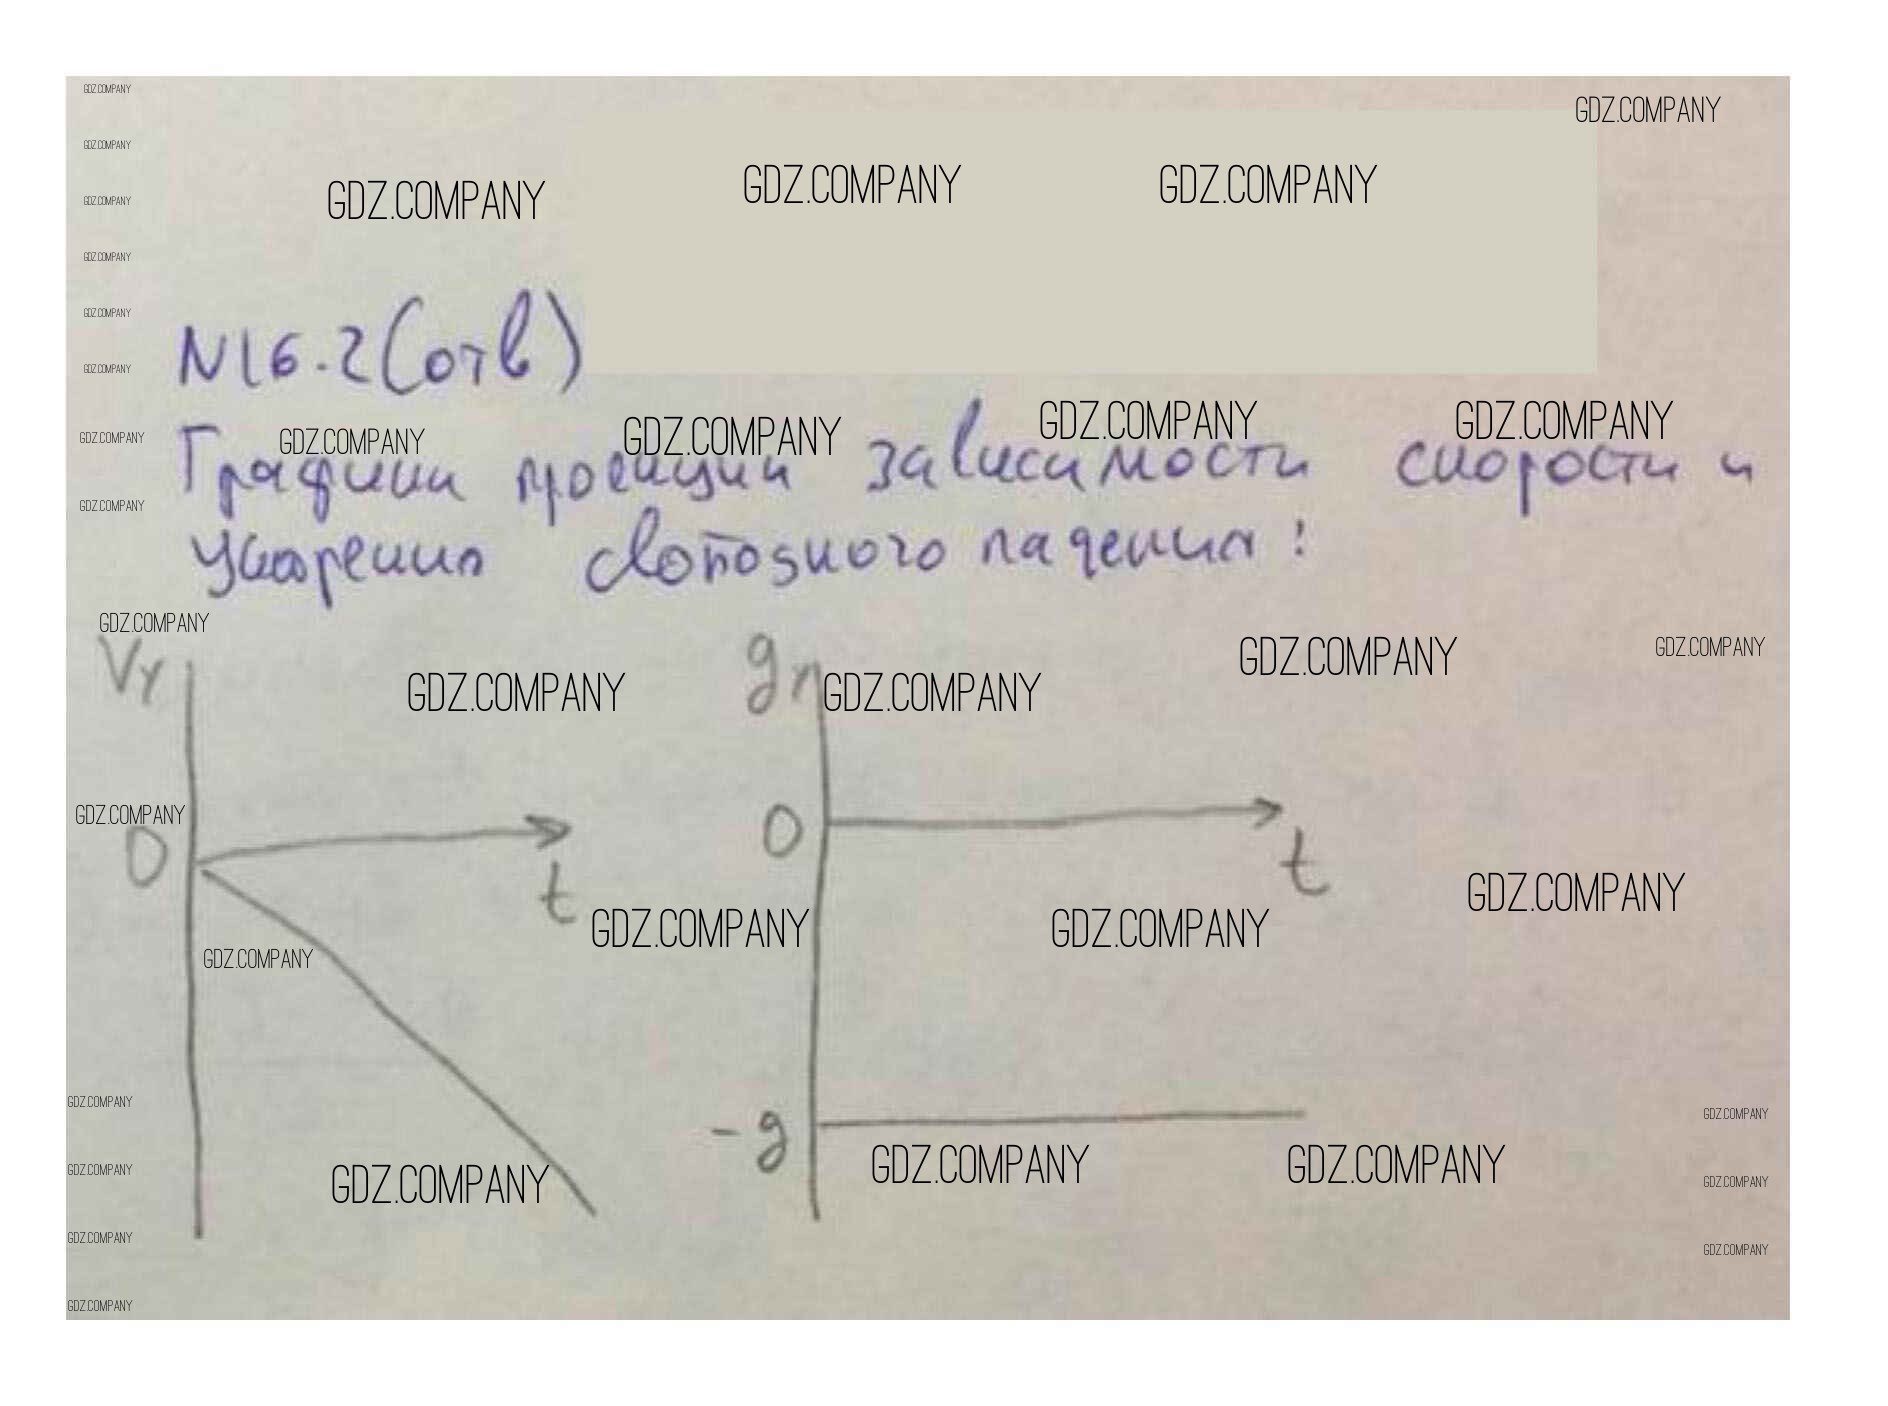 GDZ.COMPANY
GDZ.COMPANY
GDZ.COMPANY
GDZ.COMPANY GDZ.COMPANY GDZ.COMPANY
GDZ.COMPANY
GDZ.COMPANY
GDZ.COMPANY
GDZ.COMPANY
N16.2(отв)
GDZ.COMPANY GDZ.COMPANY GDZ.COMPANY GDZ.COMPANY GDZ.COMPANY
Графики проекции зависимости скорости и
GDZ.COMPANY
ускорения свободного падения:
GDZ.COMPANY
Vy GDZ.COMPANY gy GDZ.COMPANY GDZ.COMPANY GDZ.COMPANY
GDZ.COMPANY
0 t 0 t
GDZ.COMPANY GDZ.COMPANY GDZ.COMPANY
GDZ.COMPANY
GDZ.COMPANY GDZ.COMPANY
-g
GDZ.COMPANY GDZ.COMPANY GDZ.COMPANY GDZ.COMPANY GDZ.COMPANY
GDZ.COMPANY GDZ.COMPANY
GDZ.COMPANY